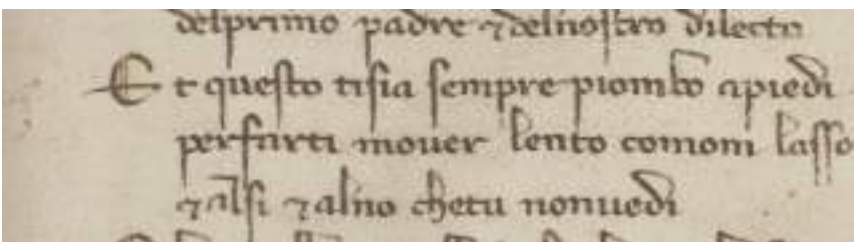 delprimo padre ⁊delnostro dilecto
Et questo tisia sempre piombo apiedi
perfarti mouer lento comom lasso
⁊alsi ⁊alno chetu nonuedi